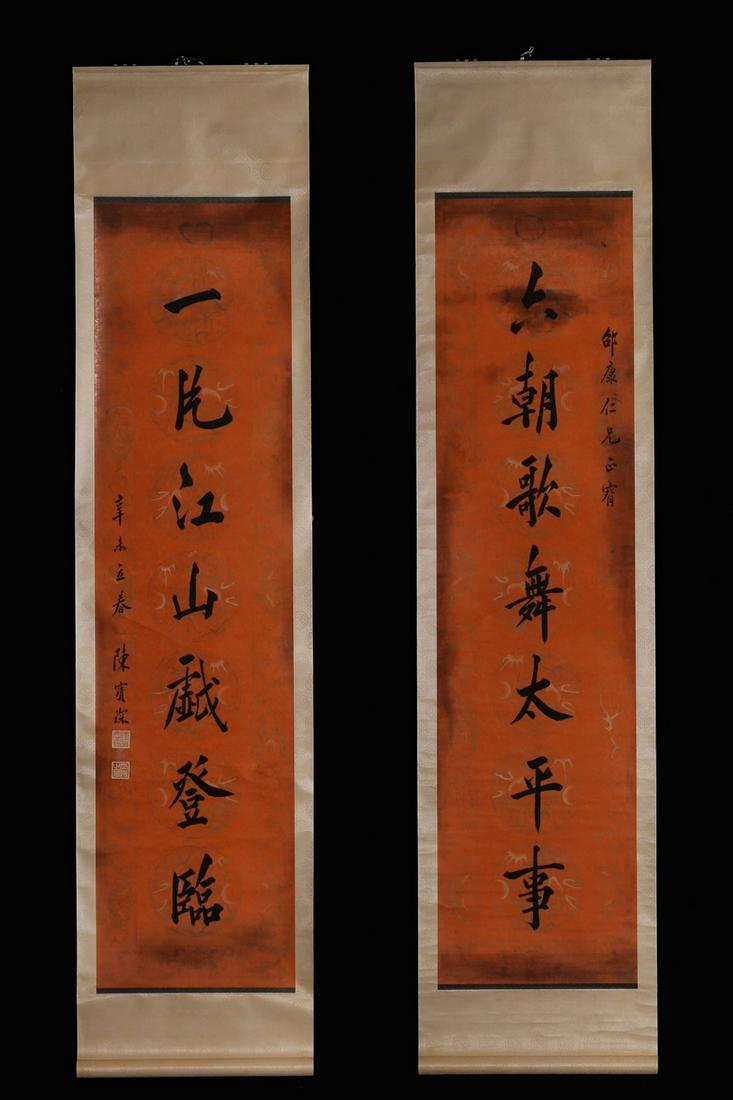 邵康仁兄正
六朝歌舞太平事
一片江山戯登臨
辛未立春 陳寶琛